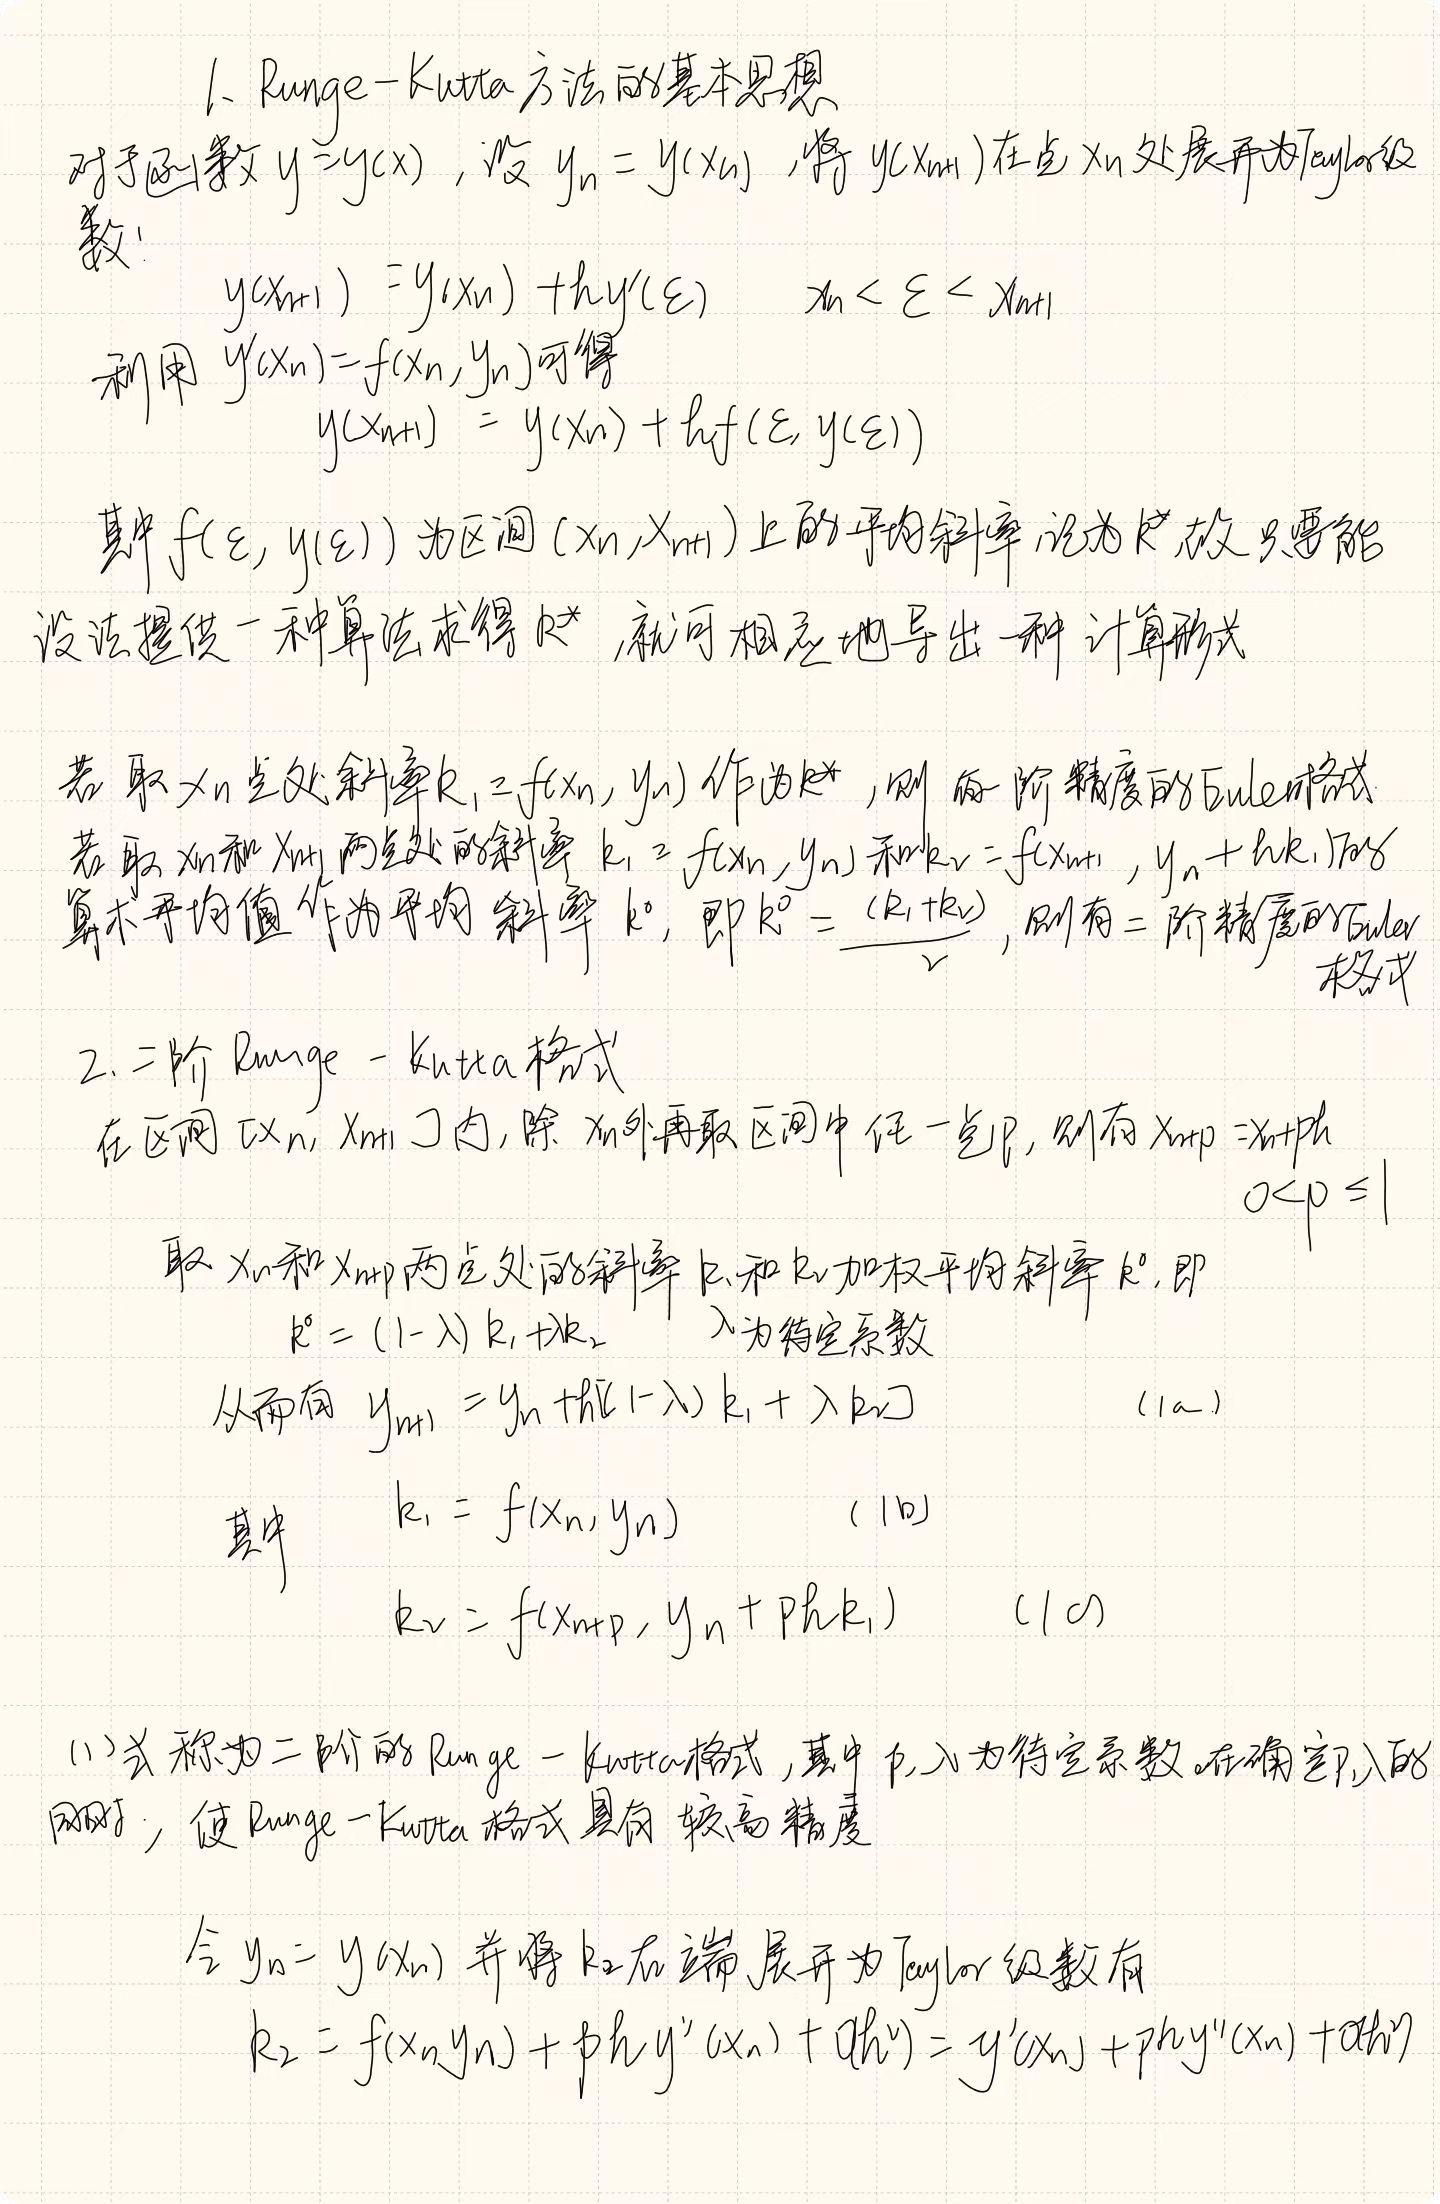 1、Runge-Kutta方法的基本思想
对于函数 y=y(x)，设 yₙ=y(xₙ)，将 y(xₙ₊₁)在点 xₙ 处展开为Taylor级
数：
y(xₙ₊₁)=y(xₙ)+hy′(ε)  xₙ<ε<xₙ₊₁
利用 y′(xₙ)=f(xₙ,yₙ)可得
y(xₙ₊₁)=y(xₙ)+hf(ε,y(ε))
其中 f(ε,y(ε))为区间(xₙ,xₙ₊₁)上的平均斜率,记为k*,故只要能
设法提供一种算法求得k*,就可相应地导出一种计算形式
若取xₙ点处斜率k₁=f(xₙ,yₙ)作为k*,则有一阶精度的Euler格式
若取xₙ和xₙ₊₁两点处的斜率 k₁=f(xₙ,yₙ)和k₂=f(xₙ₊₁,yₙ+hk₁)的
算术平均值作为平均斜率k⁰,即k⁰=(k₁+k₂)/2,则有二阶精度的Euler
格式
2.二阶Runge-Kutta格式
在区间[xₙ,xₙ₊₁]内,除xₙ外再取区间中任一点p,则有xₙ₊ₚ=xₙ+ph
0<p≤1
取xₙ和xₙ₊ₚ两点处的斜率k₁和k₂加权平均斜率k⁰,即
k⁰=(1-λ)k₁+λk₂  λ为待定系数
从而有 yₙ₊₁=yₙ+h[(1-λ)k₁+λk₂]  (1a)
k₁=f(xₙ,yₙ)  (1b)
其中
k₂=f(xₙ₊ₚ,yₙ+phk₁)  (1c)
(1)式称为二阶的Runge-Kutta格式,其中p,λ为待定系数。在确定p,λ的
同时,使Runge-Kutta格式具有较高精度
令yₙ=y(xₙ)并将k₂右端展开为Taylor级数有
k₂=f(xₙ,yₙ)+phy′(xₙ)+O(h²)=y′(xₙ)+phy″(xₙ)+O(h²)